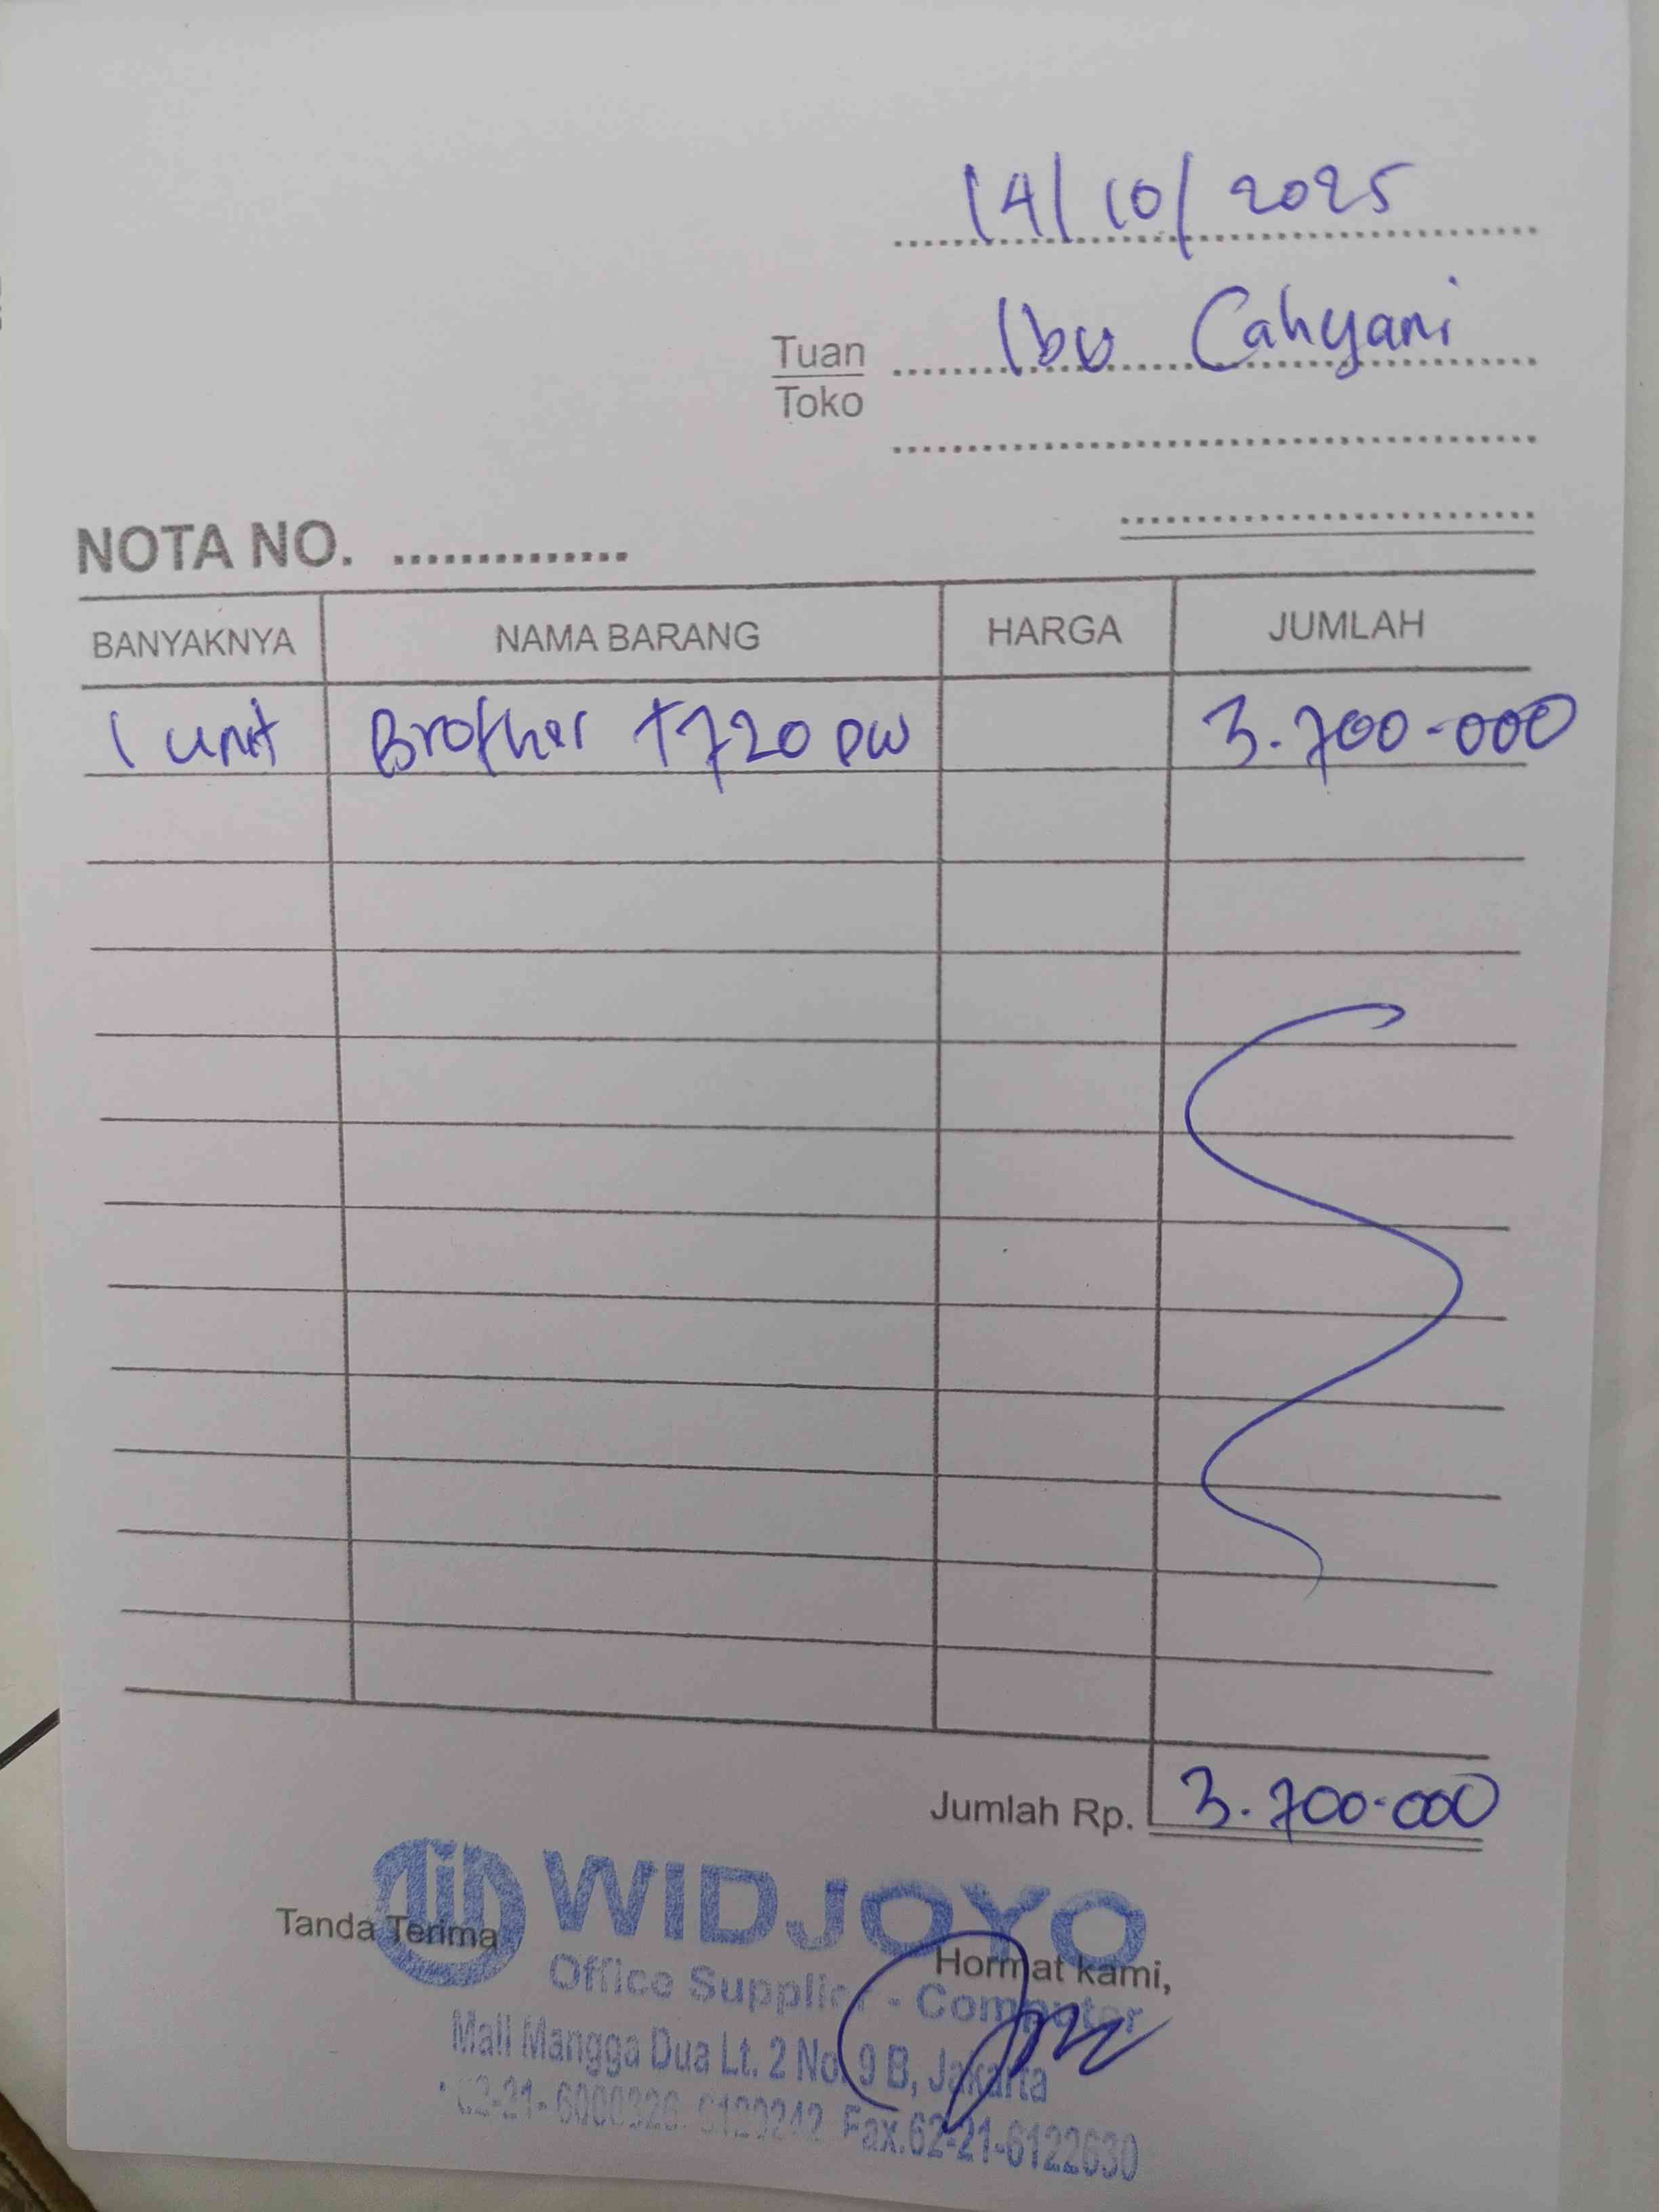 14/10/2025
Tuan Ibu Cahyani
Toko
NOTA NO. ..............
BANYAKNYA NAMA BARANG HARGA JUMLAH
1 unit Brother T720 DW 3.700.000
Jumlah Rp. 3.700.000
WIDJOYO
Tanda Terima
Hormat kami,
Office Supplier - Computer
Mall Mangga Dua Lt. 2 No. 9 B, Jakarta
62-21-6000326. Fax.62-21-6122630